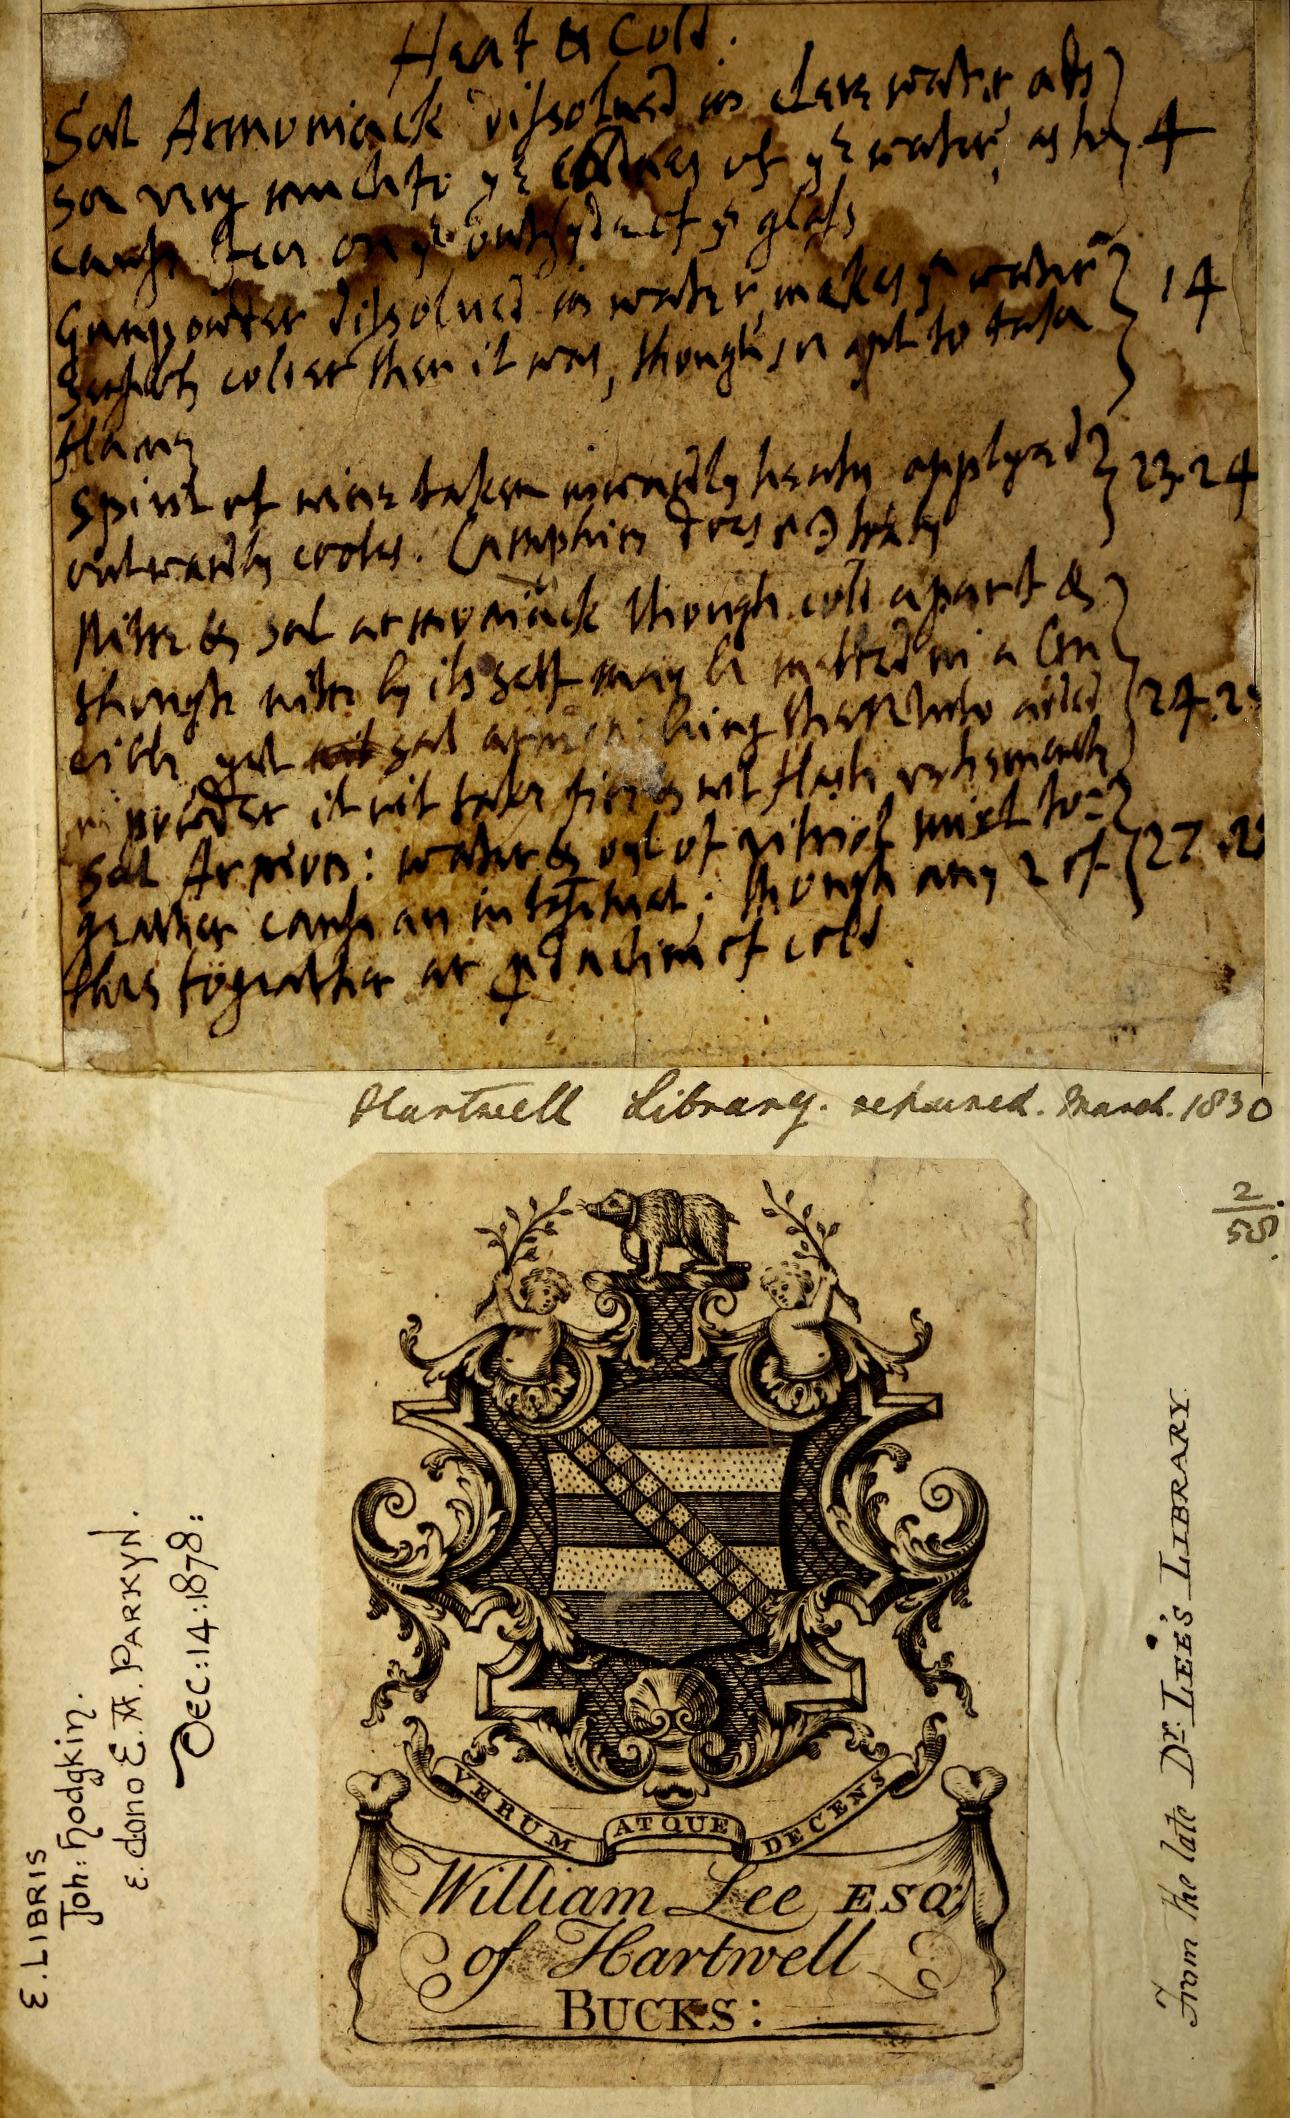 Heat & Cold.
Sal Armoniack dissolved in clere water ads
soe very much to ye coldnes of ye water, as to 4
caus Ice on ye outsyde of ye glass
Gunpowder dissolved in water, makes ye water
colder then it was, though so apt to take 14
flame
Spirit of wine taken inwardly heats applyed
outwardly cooles. Camphire does 23.24
Nitre & sal armoniack though cold apart &
though nitre by its self may be melted in a Cru
cible yet sal armon: being thereinto aded 24.25
in powder it wil take fire & wil flash vehemently
Sal Armon: water & oyl of vitriol mixt to=
geather caus an intens heat; though any 2 of 27.28
thes togeather ar pduction of cold
Hartwell Library. repaired. March. 1830
2/58.
VERUM ATQUE DECENS
William Lee ESQ
of Hartwell
BUCKS:
E. LIBRIS
Joh: Hodgkin.
E. dono E. A. PARKYN.
DEC:14:1878:
From the late Dr. LEE'S LIBRARY